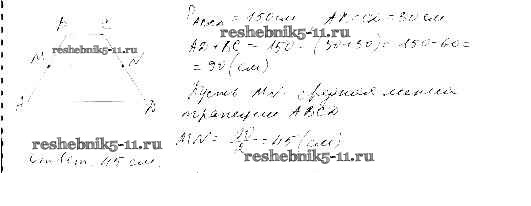 P_ABCD = 150 см    AB = CD = 30 см
AD + BC = 150 - (30+30) = 150 - 60 =
= 90 (см)
Пусть MN средная линия
трапеции ABCD
MN = 90/2 = 45 (см)
B C
reshebnik5-11.ru
M N
A D
reshebnik5-11.ru
reshebnik5-11.ru
Ответ: 45 см.